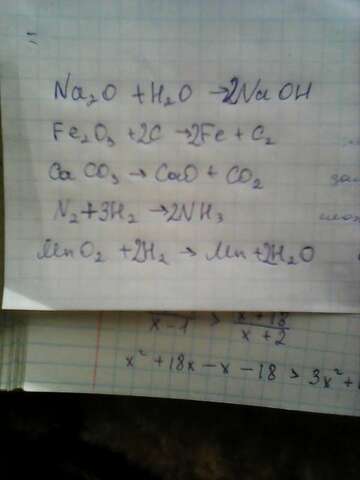 =
Na₂O + H₂O → 2NaOH
Fe₂O₃ + 2C → 2Fe + C₂
CaCO₃ → CaO + CO₂
N₂ + 3H₂ → 2NH₃
MnO₂ + 2H₂ → Mn + 2H₂O
x - 1 > x + 18 / x + 2
x² + 18x - x - 18 > 3x² +